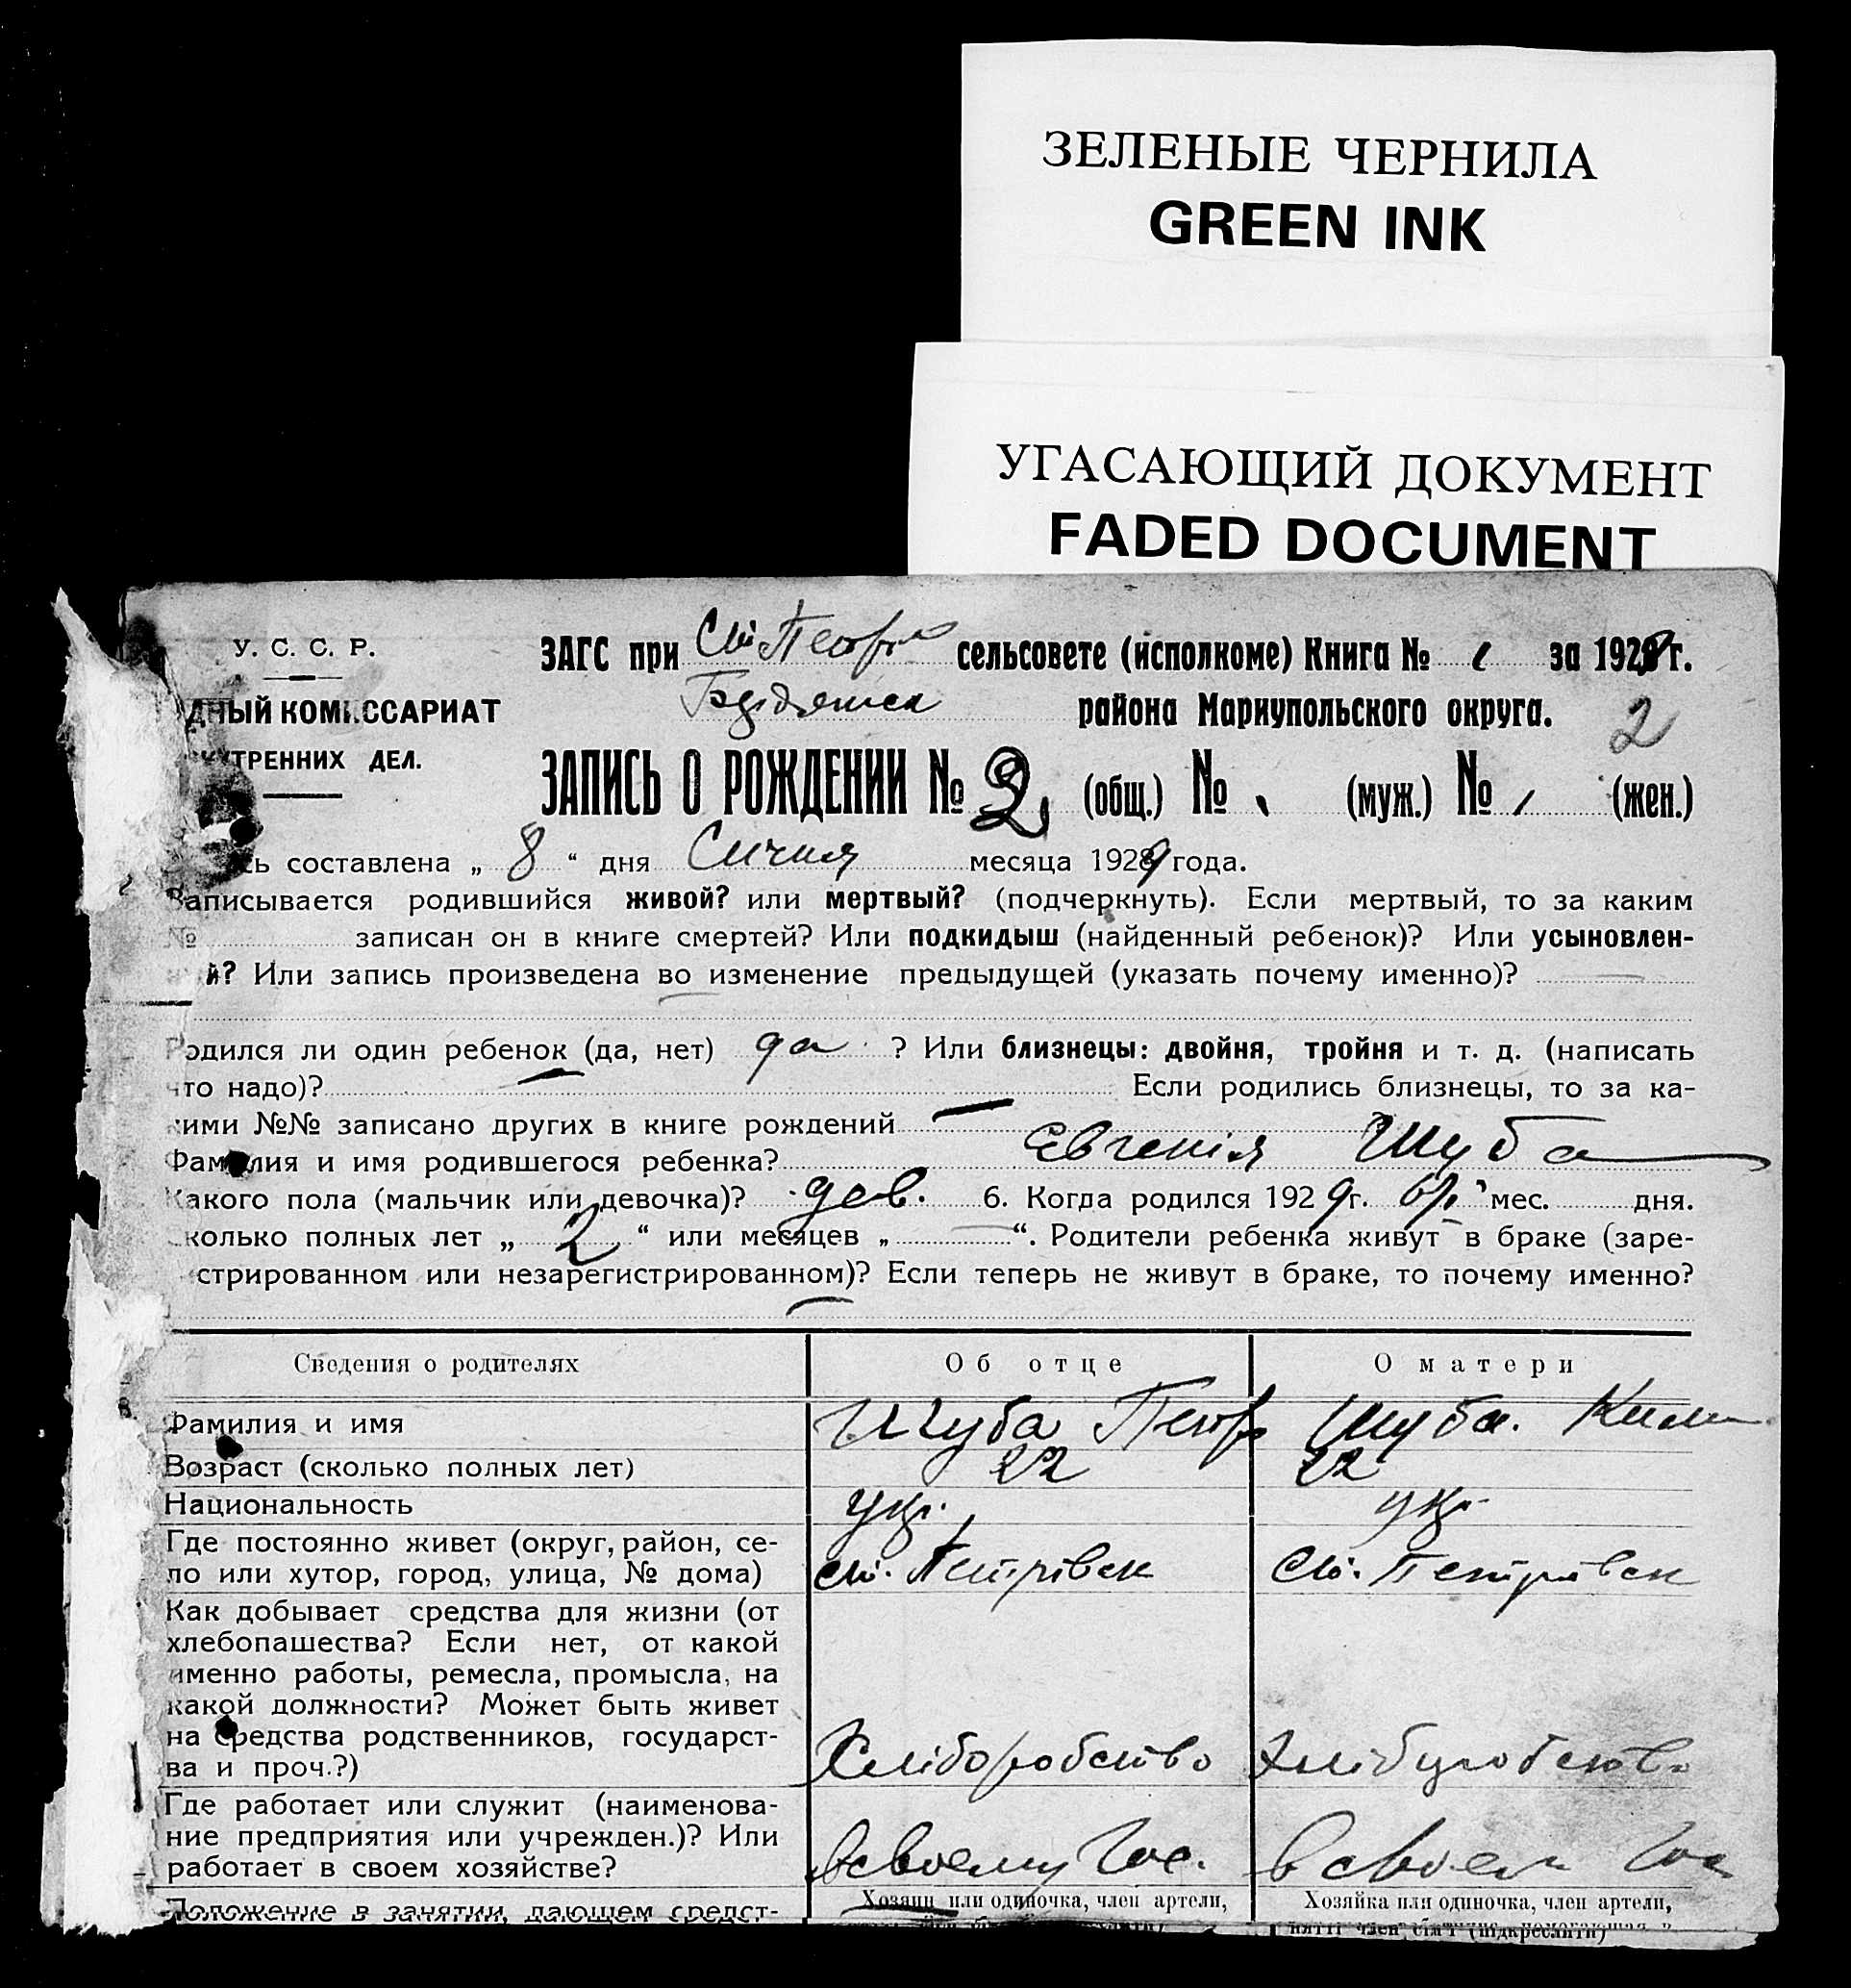 ЗЕЛЕНЫЕ ЧЕРНИЛА
GREEN INK
УГАСАЮЩИЙ ДОКУМЕНТ
FADED DOCUMENT
У. С. С. Р.
ЗАГС при сельсовете (исполкоме) Книга № 1 за 1929 г.
ДНЫЙ КОМИССАРИАТ
района Мариупольского округа.
2
УТРЕННИХ ДЕЛ.
ЗАПИСЬ О РОЖДЕНИИ № 2 (общ.) № (муж.) № 1 (жен.)
сь составлена „ 8 “ дня Січня месяца 1929 года.
Записывается родившийся живой? или мертвый? (подчеркнуть). Если мертвый, то за каким
№ записан он в книге смертей? Или подкидыш (найденный ребенок)? Или усыновлен-
й? Или запись произведена во изменение предыдущей (указать почему именно)?
Родился ли один ребенок (да, нет) да ? Или близнецы: двойня, тройня и т. д. (написать
что надо)? Если родились близнецы, то за ка-
кими №№ записано других в книге рождений
Фамилия и имя родившегося ребенка? Євгенія Шуба
Какого пола (мальчик или девочка)? дев. 6. Когда родился 1929 г. 6/I мес. дня.
колько полных лет „ 2 “ или месяцев „ “. Родители ребенка живут в браке (заре-
стрированном или незарегистрированном)? Если теперь не живут в браке, то почему именно?
Сведения о родителях Об отце О матери
Фамилия и имя Шуба Петр Шуба.
Возраст (сколько полных лет) 22 22
Национальность укр. укр.
Где постоянно живет (округ, район, се-
ло или хутор, город, улица, № дома) Петрівск Петрівск
Как добывает средства для жизни (от
хлебопашества? Если нет, от какой
именно работы, ремесла, промысла, на
какой должности? Может быть живет
на средства родственников, государст-
ва и проч.?) Хліборобство Хліборобство
Где работает или служит (наименова-
ние предприятия или учрежден.)? Или
работает в своем хозяйстве? В своему Гос. В своем Гос
Положение в занятии, дающем средст- Хозяин или одиночка, член артели, Хозяйка или одиночка, член артели,
нятті член сім'ї (підкреслити)